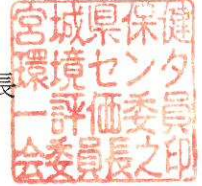 長
宮城県保健
環境センタ
ー評価委員
会委員長之印